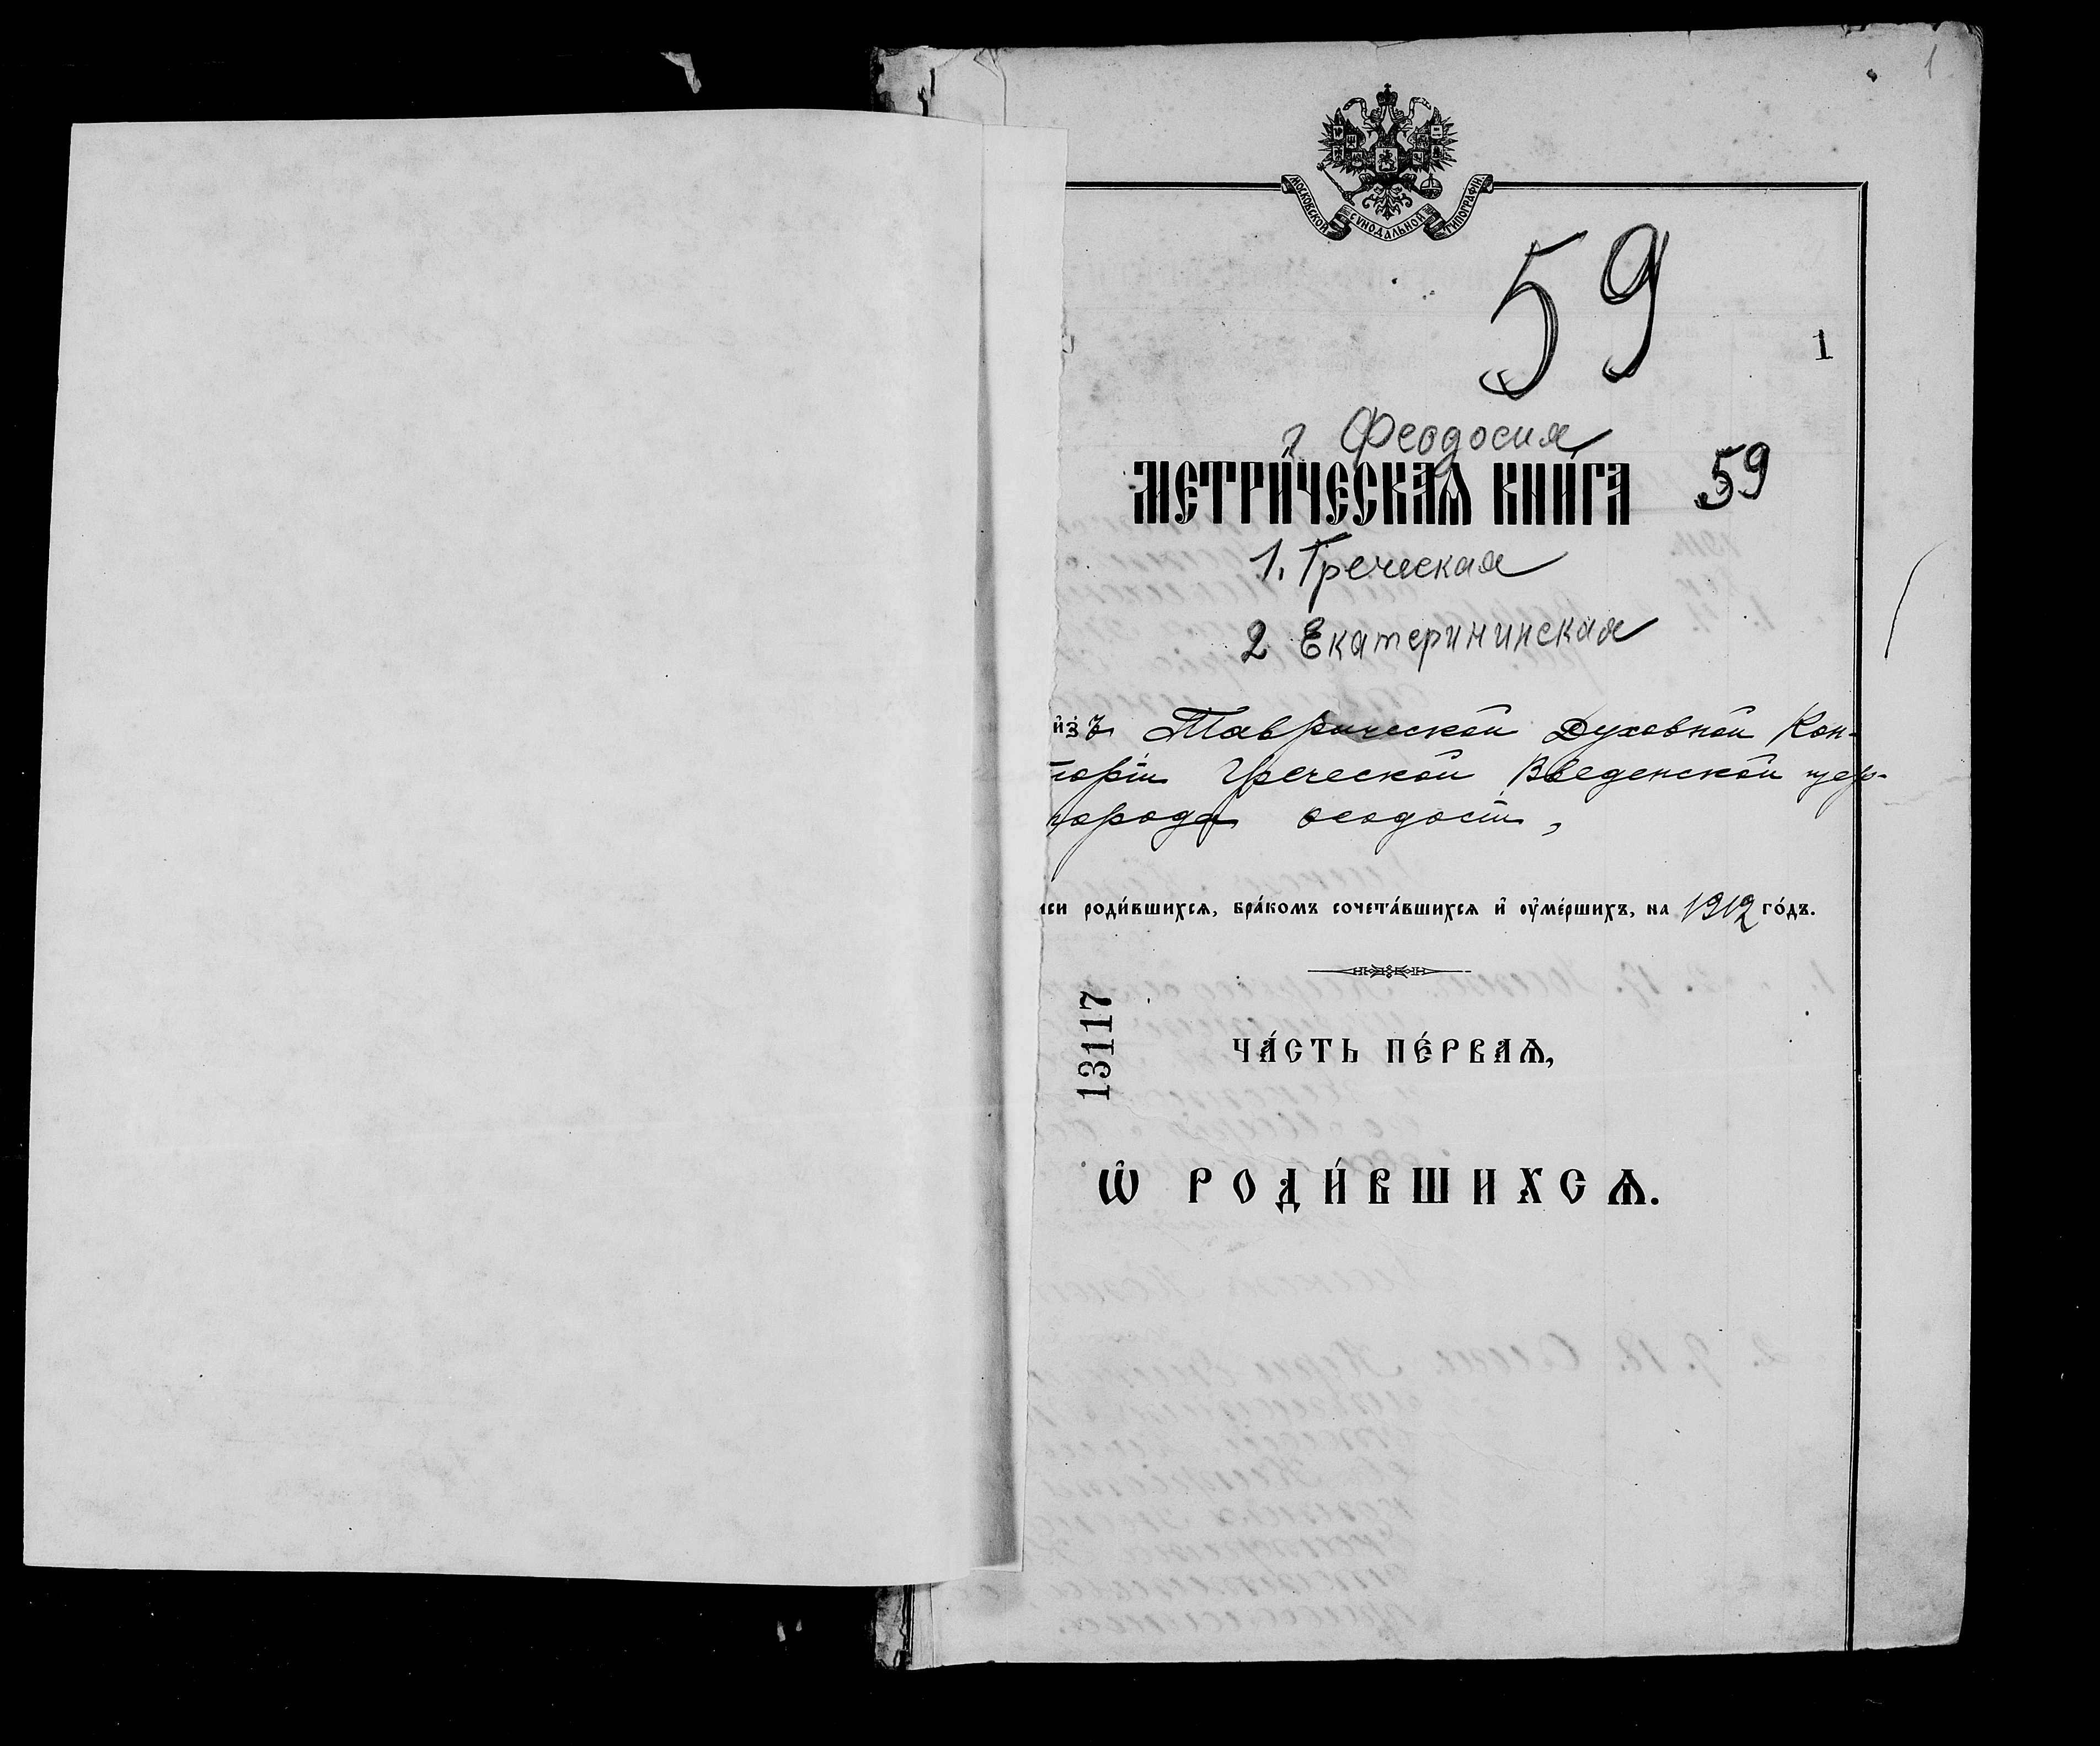 1
МОСКОВСКОЙ СУНОДАЛЬНОЙ ТИПОГРАФІИ
59
1
г Феодосия
МЕТРИ́ЧЕСКАѦ КНИ́ГА 59
1. Греческая
2 Екатерининская
и҆зъ Таврической Духовной Кон-
торіи Греческой Введенской цер-
города Ѳеодосіи,
иси роди́вшихсѧ, бра́комъ сочета́вшихсѧ и҆ оу҆ме́ршихъ, на 1912 го́дъ.
13117
ЧА́СТЬ ПЕ́РВАѦ,
Ѡ҆ РОДИ́ВШИХСѦ.